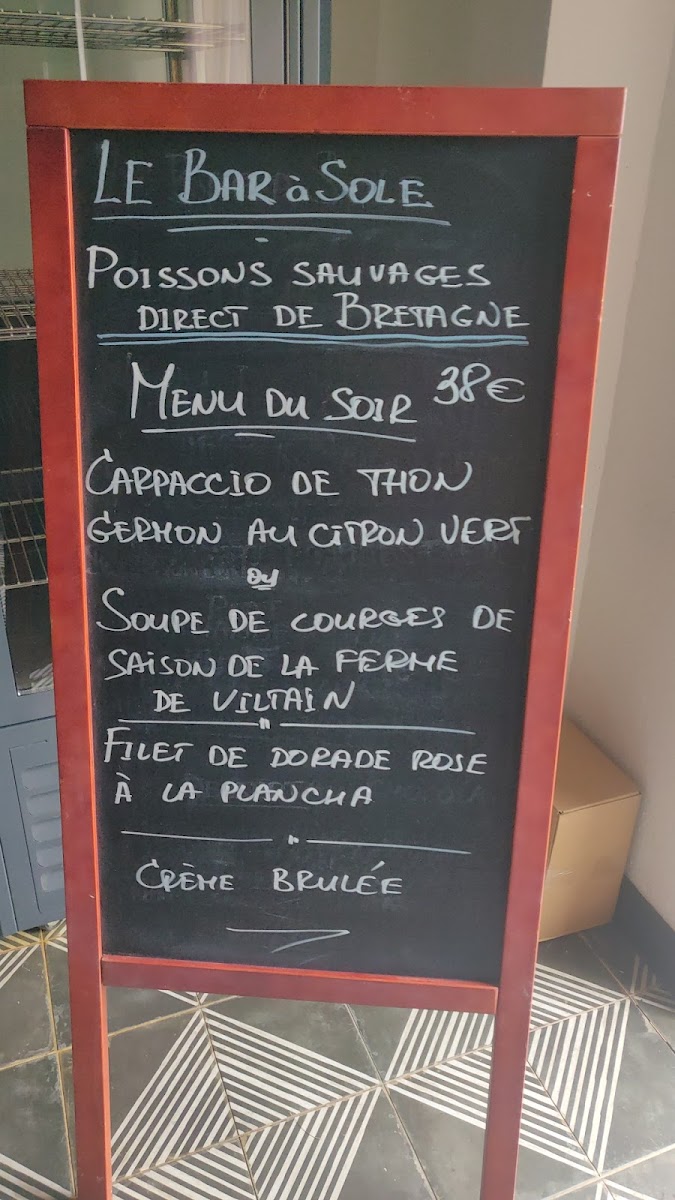 LE BAR à SOLE
POISSONS SAUVAGES
DIRECT DE BRETAGNE
MENU DU SOIR 38€
CARPACCIO DE THON
GERMON AU CITRON VERT
OU
SOUPE DE COURGES DE
SAISON DE LA FERME
DE VILTAIN
FILET DE DORADE ROSE
À LA PLANCHA
CRÈME BRULÉE